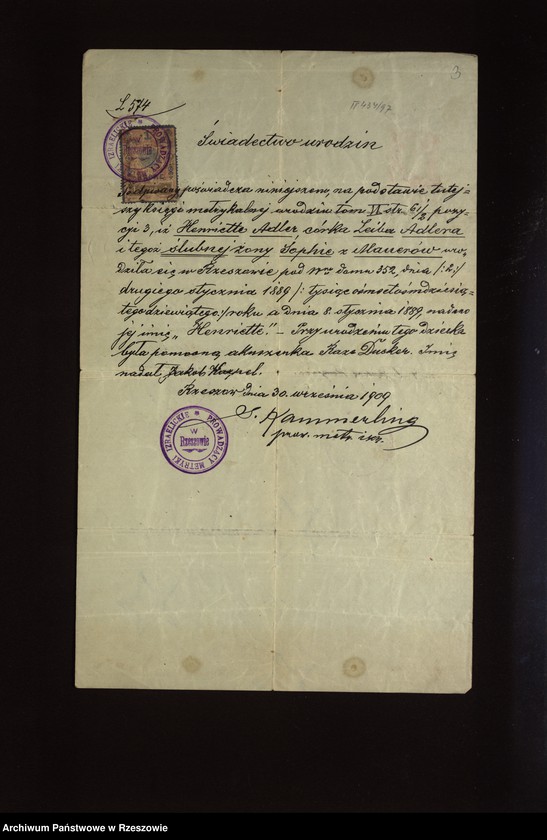 3
L 574
II 484/97
Świadectwo urodzin
PROWADZĄCY METRYKI IZRAELICKIE
Podpisany poświadcza niniejszem, na podstawie tutej-
szej księgi metrykalnej urodzin tom VI str. 61/2 pozy-
cji 3, iż Henriette Adler córka Leiba Adlera
i tegoż ślubnej żony Sophie z Mauerów uro-
dziła się w Rzeszowie pod Nrem domu 352, dnia /:2:/
drugiego stycznia 1889 /: tysiąc ośmset ośmdziesią-
tego dziewiątego:/ roku a dnia 8. stycznia 1889, nadano
jej imię „Henriette” – Przy urodzeniu tego dziecka
była pomocną akuszerka Raza Ducker. Imię
nadał Jakób Karpel.
Rzeszów dnia 30. września 1909
S. Kammerling
prow. metr. izr.
PROWADZĄCY METRYKI IZRAELICKIE
W
Rzeszowie
Archiwum Państwowe w Rzeszowie